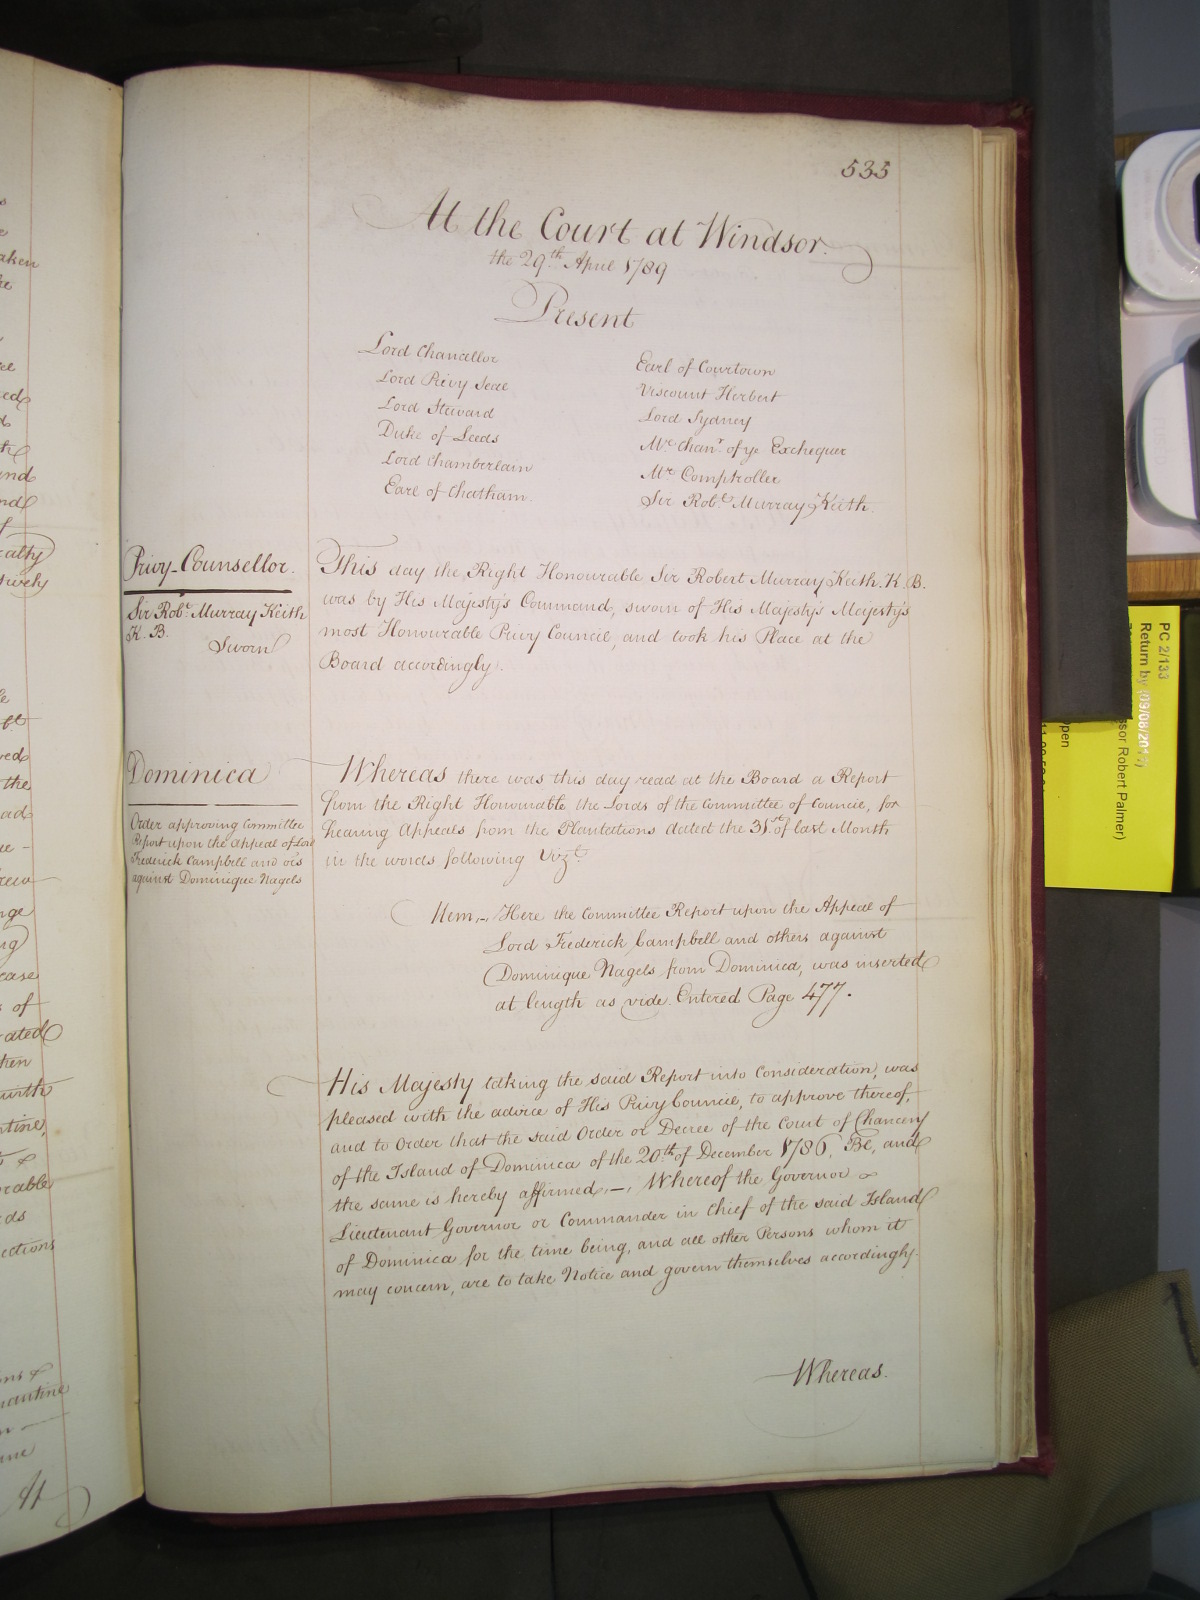 535
At the Court at Windsor.
the 29th April 1789
Present
Lord Chancellor
Lord Privy Seal
Lord Steward
Duke of Leeds
Lord Chamberlain
Earl of Chatham.
Earl of Courtown
Viscount Herbert
Lord Sydney
Mr Chanr of ye Exchequer
Mr Comptroller
Sir Robt Murray Keith.
Privy-Counsellor.
Sir Robt Murray Keith
K. B.
Sworn
This day the Right Honourable Sir Robert Murray Keith. K. B.
was by His Majesty's Command, sworn of His Majesty's Majesty's
most Honourable Privy Council, and took his Place at the
Board accordingly.
Dominica
Order approving Committee
Report upon the Appeal of Lord
Frederick Campbell and ors
against Dominique Nagels
Whereas there was this day read at the Board a Report
from the Right Honourable the Lords of the Committee of Council, for
hearing Appeals from the Plantations dated the 31st of last Month
in the words following Vizt
Mem,-, Here the Committee Report upon the Appeal of
Lord Frederick Campbell and others against
Dominique Nagels from Dominica, was inserted
at length as vide Entered Page 477.
His Majesty taking the said Report into Consideration, was
pleased with the advice of His Privy Council, to approve thereof,
and to Order that the said Order or Decree of the Court of Chancery
of the Island of Dominica of the 20th of December 1786, Be, and
the same is hereby affirmed,-, Whereof the Governor
Lieutenant Governor or Commander in Chief of the said Island
of Dominica for the time being, and all other Persons whom it
may concern, are to take Notice and govern themselves accordingly.
Whereas.
PC 2/133
Return by (09/08/2017)
ssor Robert Palmer)